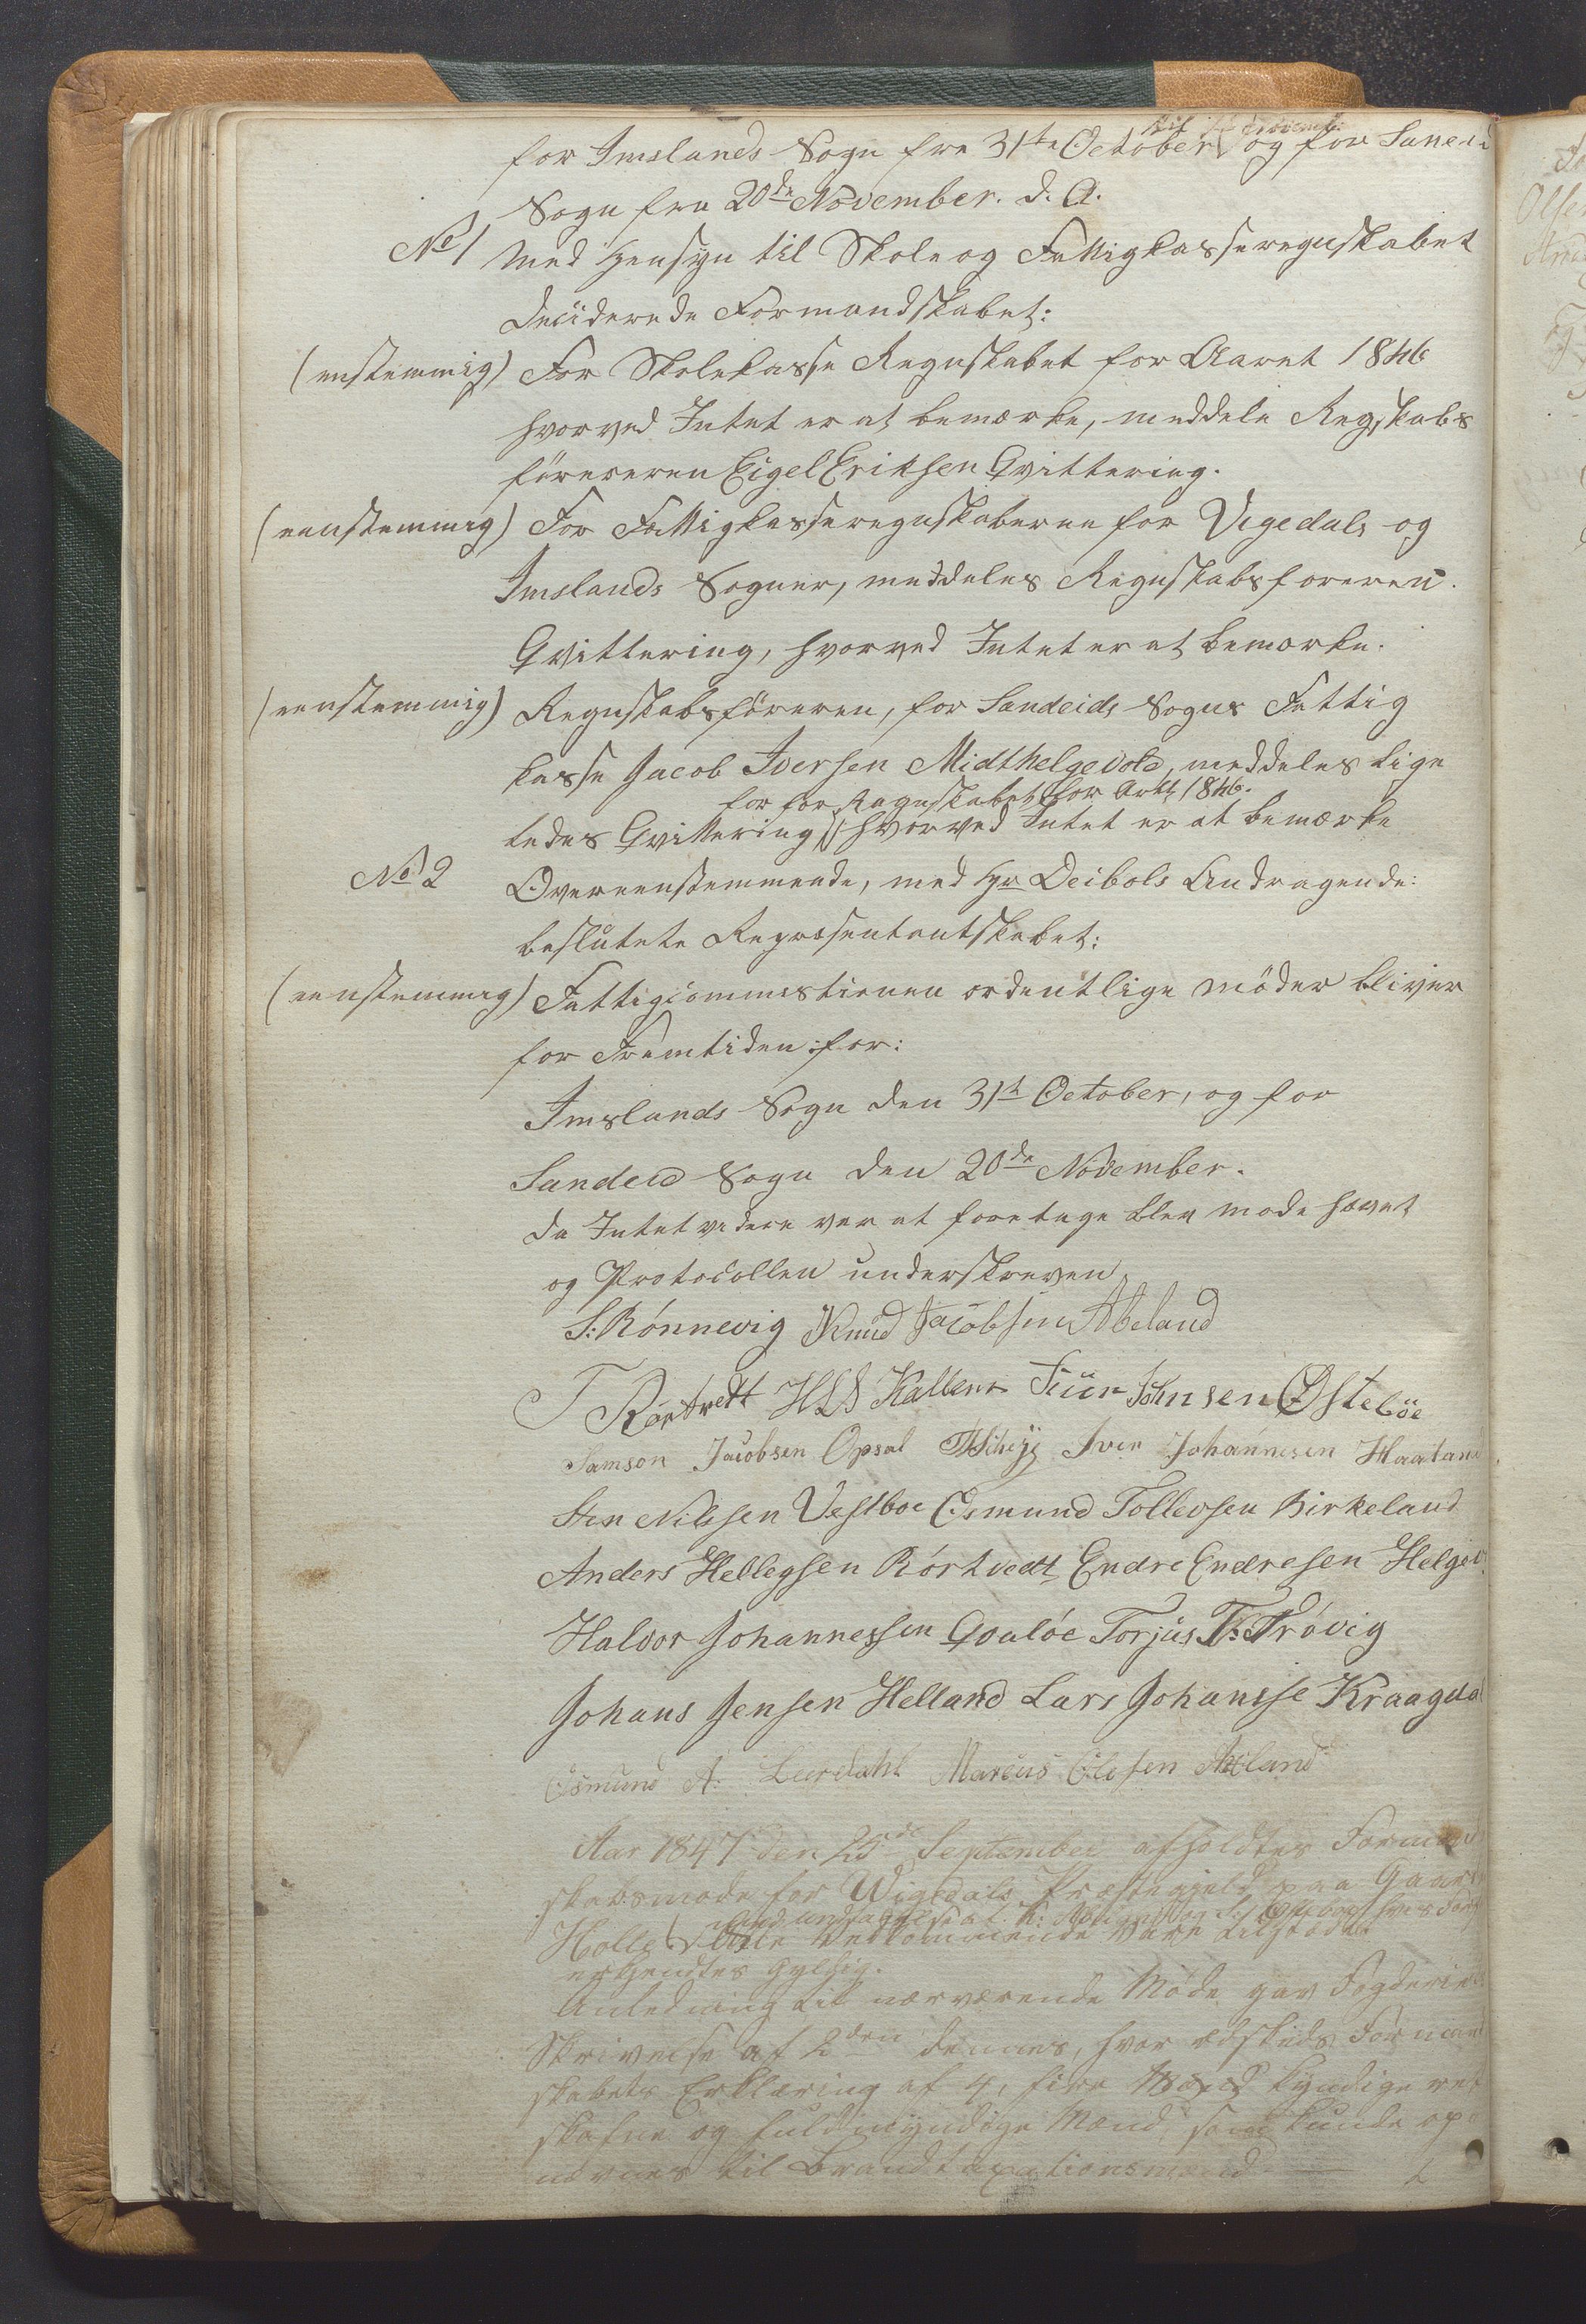 til 1ste Novemb:
for Imslands Sogn fra 31te October og for Saneid
Sogn fra 20de November. d. A.
No 1 Med Hensyn til Skole og Fattigkasseregnskabet
deciderede Formandskabet:
(enstemmig) For Skolekasse Regnskabet for Aaret 1846
hvorved Intet er at bemærke, meddele Regskabs
föreren Eigel Eriksen Qvittering.
(eenstemmig) For Fattigkasseregnskaberne for Vigedals og
Imslands Sogner, meddeles Regnskabsforeren
Qvittering, hvorved Intet er at bemærke.
(eenstemmig) Regnskabsföreren, for Sandeids Sogns Fattig
kasse Jacob Iversen Midthelgevold, meddeles lige
for for Regnskabet for 1846.
ledes Qvittering, hvorved Intet er at bemærke
No 2 Overeenstemmende, med Hr Deibols Andragende:
besluttete Repræsentantskabet:
(eenstemmig) Fattigcommistionen ordentlige möder bliver
for Fremtiden: for:
Imslands Sogn den 31te October, og for
Sandeid Sogn den 20de November.
da Intet videre var at foretage blev mode hævet
og Protocollen underskreven
S: Rönnevig Knud Jacobsen Abeland
T Rørtvedt HLS Kallem Finn Johnsen Østeböe
Samson Jacobsen Opsal Iver Johannesen Haaland
Sten Nilssen Vestboe Osmund Tollevsen Birkeland
Anders Hellegsen Rörtvedt Endre Endresen Helgev
Halvor Johannessen Qvalöe Torjus T: Tróvig
Johans Jensen Helland Lars Johansse Kraagdal
Osmund A: Lurdahl Marcus Olesen Axland
Aar 1847 den 25de September afholdtes Formand
skabsmode for Wigedals Præstegjeld paa Gaard
med undtagelse af K: og hvis
Holle Alle Vedkommende vare tilstæde
erkjendtes Gyldig.
Anledning til nærværende Möde gav Fogderiets
Skrivelse af 2den dennes, hvor Formand
skabets Erklæring af 4, fire kyndige ret
skafne og fuldmyndige Mænd, som kunde op
nævnes til Brandtaxationsmænd